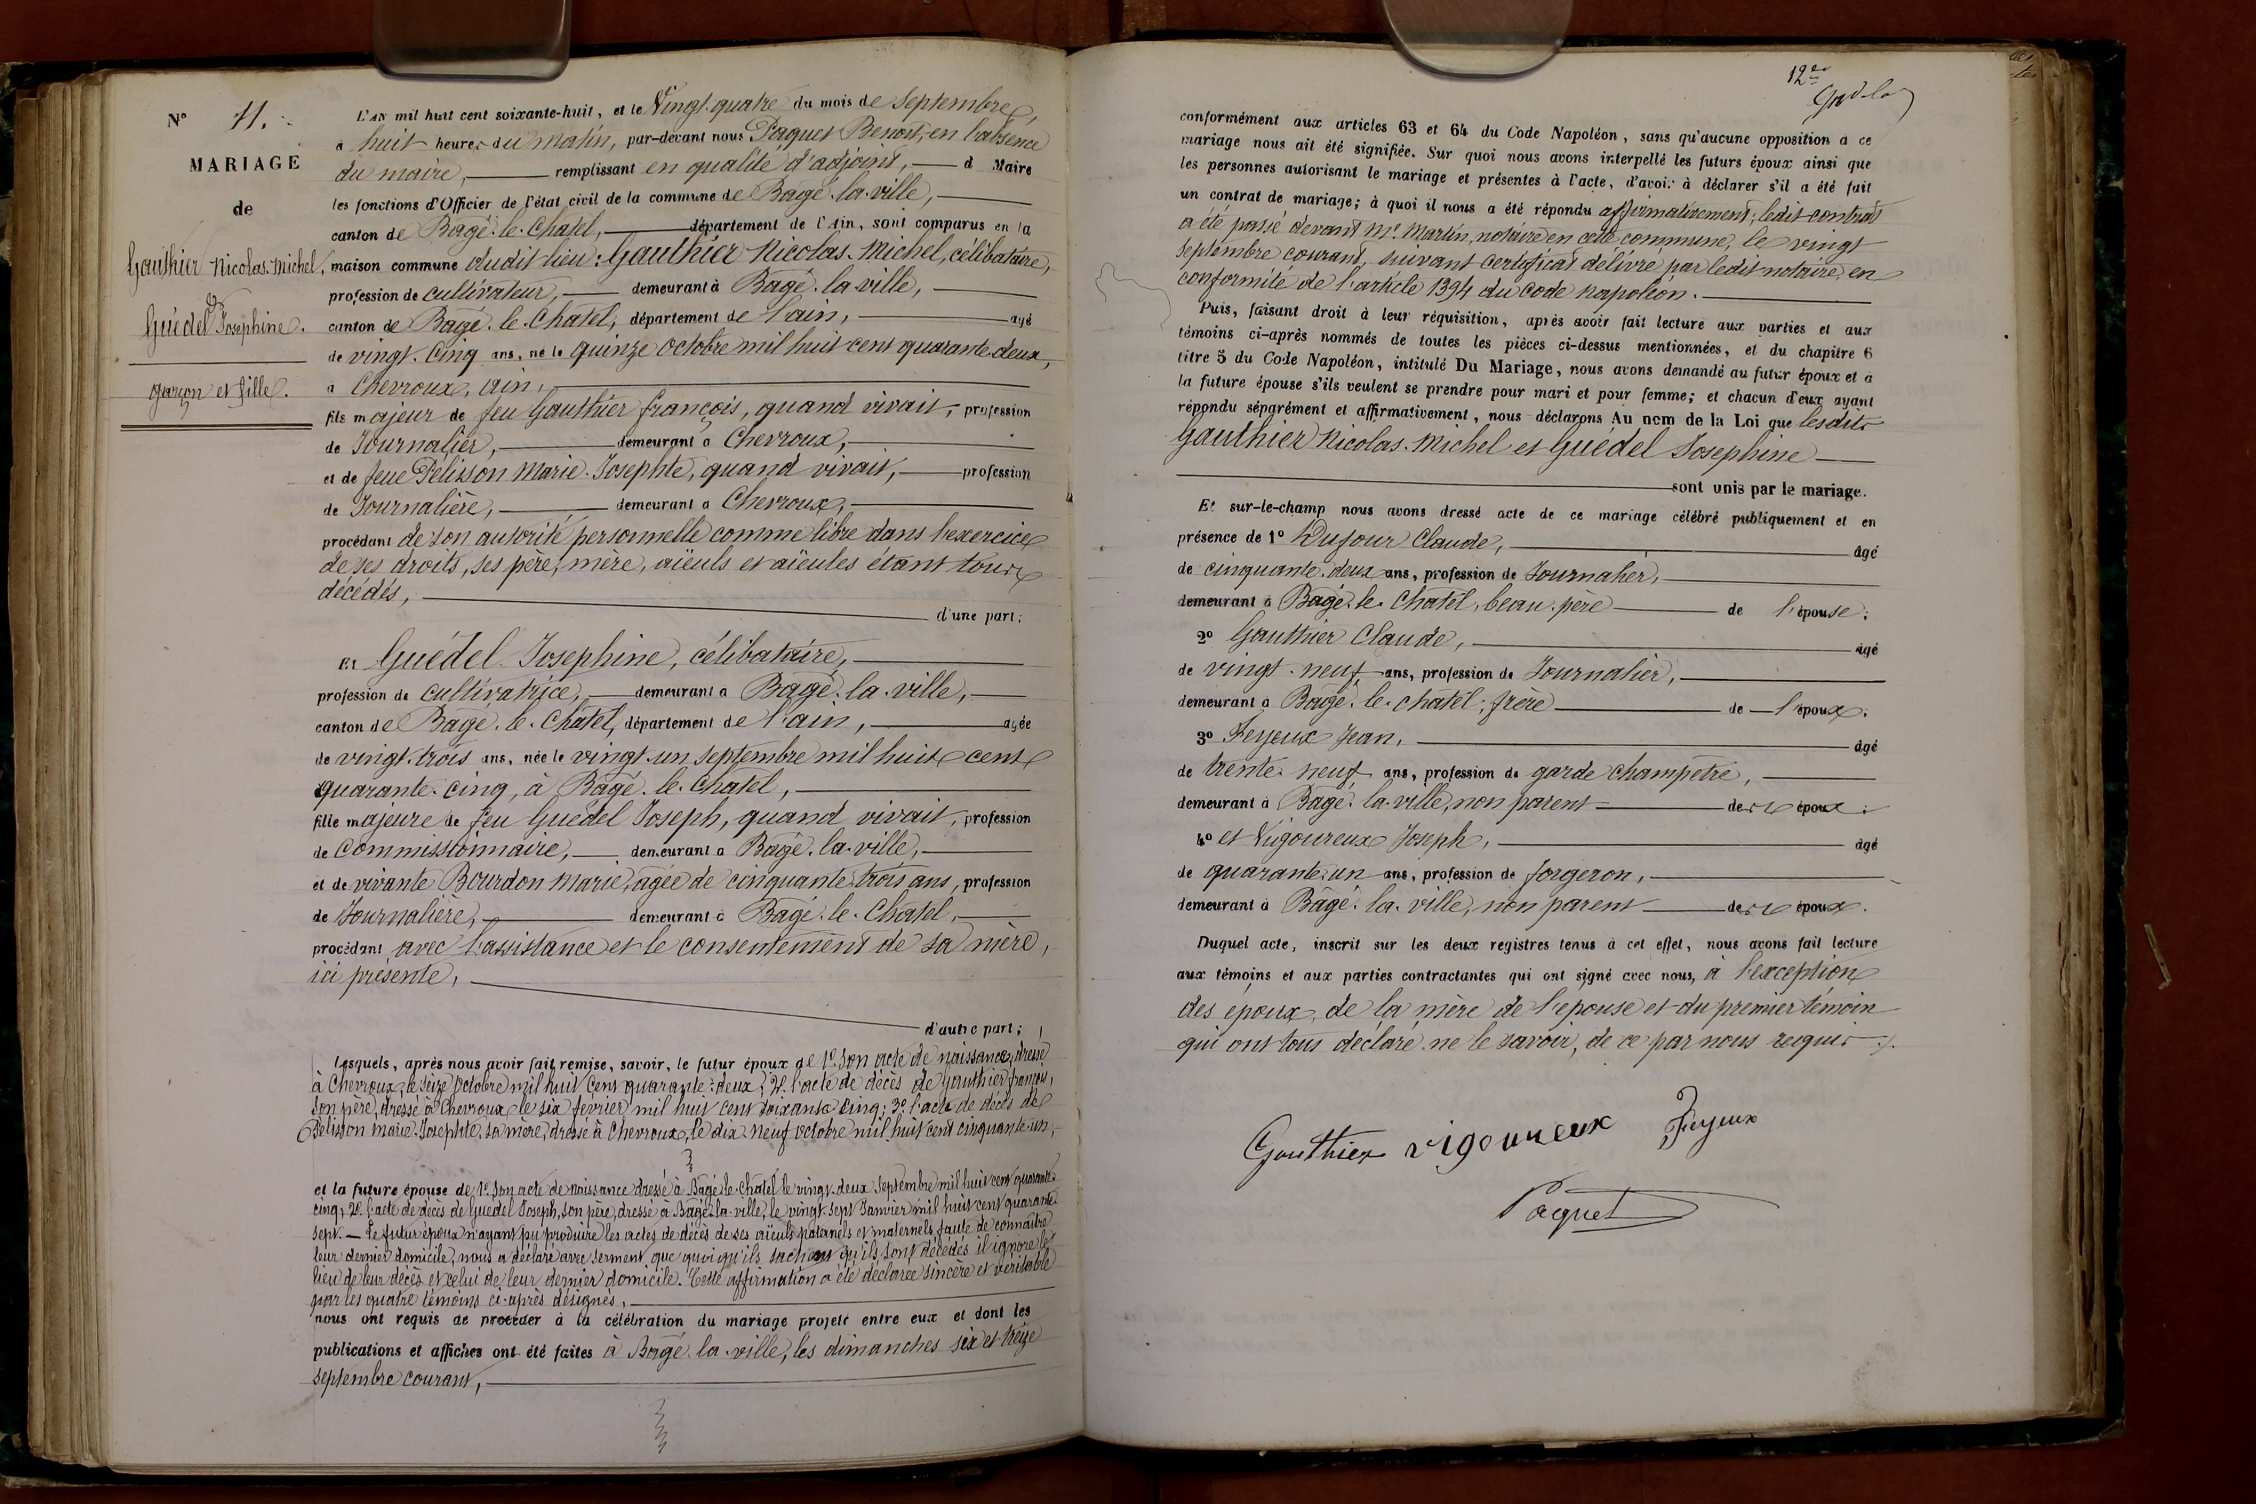 N° 11.
MARIAGE
de
Gauthier Nicolas-Michel,
&
Guédel Josephine.
garçon et fille.
L'AN mil huit cent soixante-huit, et le Vingt-quatre du mois de Septembre,
à huit heures du matin, par-devant nous Paquet Benoit, en l'absence
du maire, remplissant en qualité d'adjoint, d Maire
les fonctions d'Officier de l'état civil de la commune de Bagé-la-ville,
canton de Bagé-le-Chatel, département de l'Ain, sont comparus en la
maison commune dudit lieu : Gauthier Nicolas-Michel, célibataire,
profession de cultivateur, demeurant à Bagé-la-ville,
canton de Bagé-le-Chatel, département de l'ain, âgé
de vingt-cinq ans, né le quinze octobre mil huit cent quarante-deux,
à Chevroux, ain,
fils majeur de feu Gauthier françois, quand vivait, profession
de Journalier, demeurant à Chevroux,
et de feue Pélisson Marie-Josephte, quand vivait, profession
de Journalière, demeurant à Chevroux,
procédant de son autorité personnelle comme libre dans l'exercice
de ses droits, ses père, mère, aïeuls et aïeules étant tous
décédés,
d'une part;
Et Guédel Josephine, célibataire,
profession de cultivatrice, demeurant à Bagé-la-ville,
canton de Bagé-le-Chatel, département de l'ain, âgée
de vingt-trois ans, née le vingt-un septembre mil huit cent
quarante-cinq, à Bagé-le-Chatel,
fille majeure de feu Guédel Joseph, quand vivait, profession
de Commissionnaire, demeurant à Bagé-la-ville,
et de vivante Bourdon Marie, agée de cinquante-trois ans, profession
de Journalière, demeurant à Bagé-le-Chatel,
procédant avec l'assistance et le consentement de sa mère,
ici présente,
d'autre part;
Lesquels, après nous avoir fait remise, savoir, le futur époux de 1° son acte de naissance, dressé
à Chevroux, le seize octobre mil huit cent quarante-deux; 2° l'acte de décès de Gauthier françois,
son père, dressé à Chevroux le six fevrier mil huit cent soixante cinq; 3° l'acte de décès de
Pelisson Marie-Josephte, sa mère, dressé à Chevroux, le dix-neuf octobre mil huit cent cinquante-un,
et la future épouse de 1° son acte de naissance dressé à Bagé-le-Chatel le vingt-deux septembre mil huit cent quarante
cinq; 2° l'acte de décès de Guédel Joseph, son père, dressé à Bagé-la-ville, le vingt-sept Janvier mil huit cent quarante
sept. — Le futur époux n'ayant pu produire les actes de décès de ses aïeuls paternels et maternels faute de connaître
leur dernier domicile, nous a déclaré avec serment que quoiqu'ils sachent qu'ils sont décédés il ignore le
lieu de leur décès et celui de leur dernier domicile. Cette affirmation a été déclarée sincère et véritable
par les quatre témoins ci-après désignés,
nous ont requis de procéder à la célébration du mariage projeté entre eux et dont les
publications et affiches ont été faites à Bagé-la-ville, les dimanches six et treize
septembre courant,
12e
conformément aux articles 63 et 64 du Code Napoléon, sans qu'aucune opposition à ce
mariage nous ait été signifiée. Sur quoi nous avons interpellé les futurs époux ainsi que
les personnes autorisant le mariage et présentes à l'acte, d'avoir à déclarer s'il a été fait
un contrat de mariage; à quoi il nous a été répondu affirmativement; ledit contrat
a été passé devant Me Martin, notaire en cette commune, le vingt
septembre courant, suivant certificat délivré par ledit notaire en
conformité de l'article 1394 du Code Napoléon.
Puis, faisant droit à leur réquisition, après avoir fait lecture aux parties et aux
témoins ci-après nommés de toutes les pièces ci-dessus mentionnées, et du chapitre 6
titre 5 du Code Napoléon, intitulé Du Mariage, nous avons demandé au futur époux et à
la future épouse s'ils veulent se prendre pour mari et pour femme; et chacun d'eux ayant
répondu séparément et affirmativement, nous déclarons Au nom de la Loi que lesdits
Gauthier Nicolas-Michel et Guédel Josephine
sont unis par le mariage.
Et sur-le-champ nous avons dressé acte de ce mariage célébré publiquement et en
présence de 1° Dufour Claude, âgé
de cinquante-deux ans, profession de Journalier,
demeurant à Bagé-le-Chatel, beau-père de l'épouse;
2° Gauthier Claude, âgé
de vingt-neuf ans, profession de Journalier,
demeurant à Bagé-le-chatel, frère de l'époux;
3° Feyeux Jean, âgé
de trente-neuf ans, profession de garde champêtre,
demeurant à Bagé-la-ville, non parent des époux;
4° et Vigoureux Joseph, âgé
de quarante-un ans, profession de forgeron,
demeurant à Bagé-la-ville, non parent des époux.
Duquel acte, inscrit sur les deux registres tenus à cet effet, nous avons fait lecture
aux témoins et aux parties contractantes qui ont signé avec nous, à l'exception
des époux, de la mère de l'epouse et du premier témoin
qui ont tous déclaré ne le savoir, de ce par nous requis.
Gauthier vigoureux Feyeux
Paquet